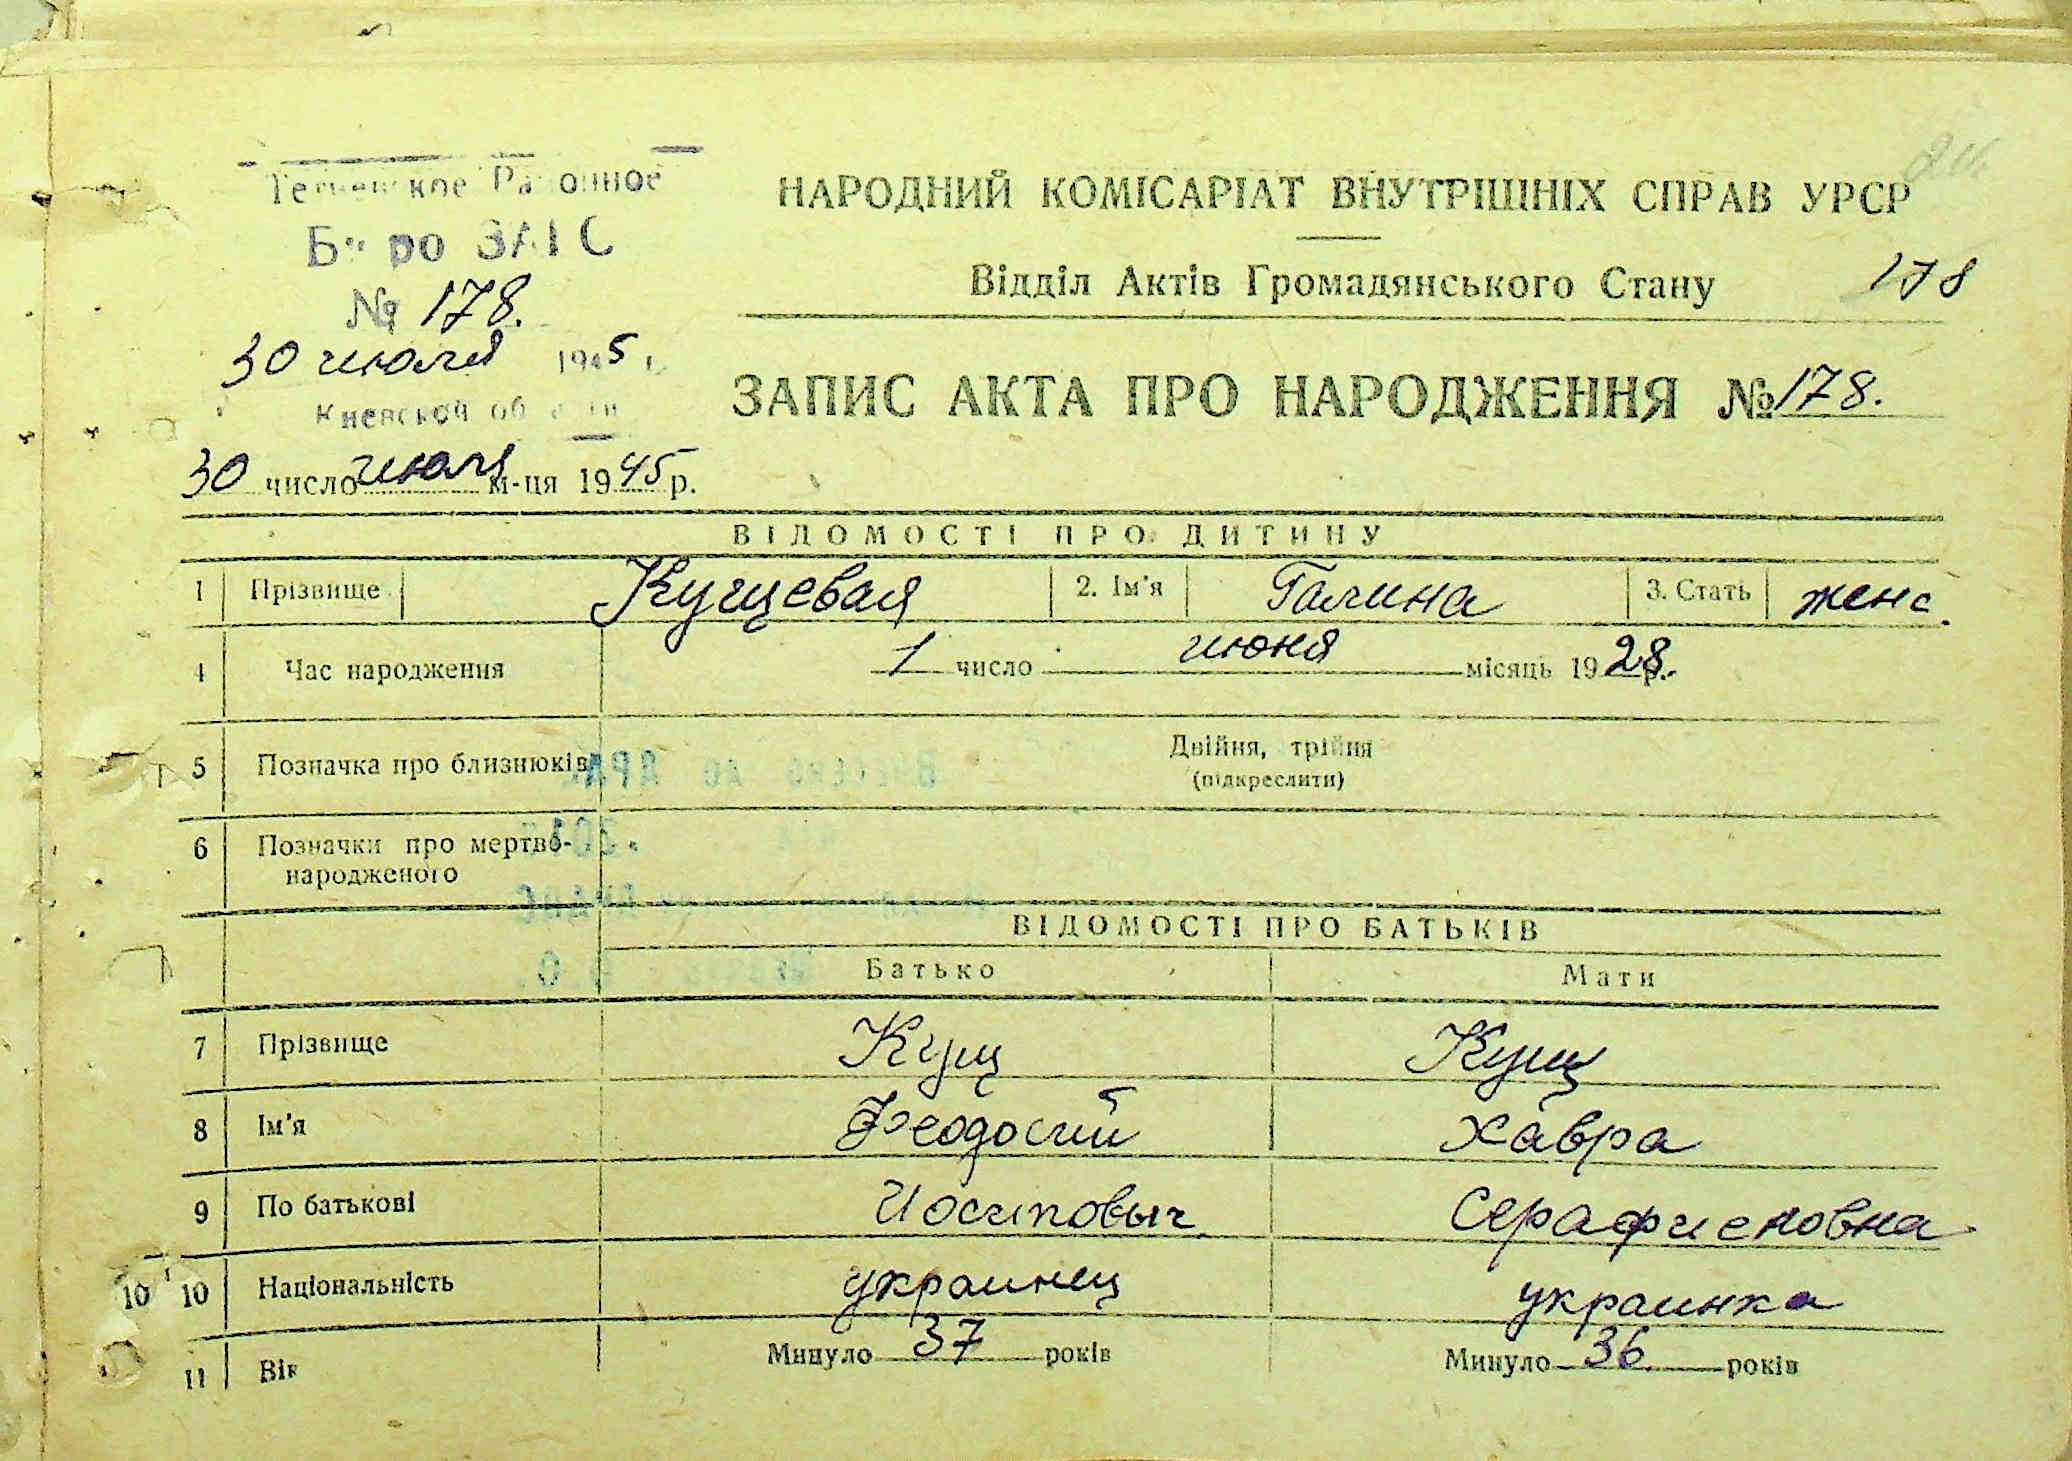 Районное
Бюро ЗАГС
№ 178.
30 июля 1945 г.
Киевской области
НАРОДНИЙ КОМІСАРІАТ ВНУТРІШНІХ СПРАВ УРСР
Відділ Актів Громадянського Стану
178
ЗАПИС АКТА ПРО НАРОДЖЕННЯ № 178.
30 число июля м-ця 1945 р.
ВІДОМОСТІ ПРО ДИТИНУ
1 Прізвище Кущевая 2. Ім'я Галина 3. Стать женс.
4 Час народження 1 число июня місяць 1928 р.
5 Позначка про близнюків Двійня, трійня
(підкреслити)
6 Позначки про мертво-
народженого
ВІДОМОСТІ ПРО БАТЬКІВ
Батько Мати
7 Прізвище Кущ Кущ
8 Ім'я Феодосий Хавра
9 По батькові Иосипович Серафимовна
10 10 Національність украинец украинка
11 Вік Минуло 37 років Минуло 36 років